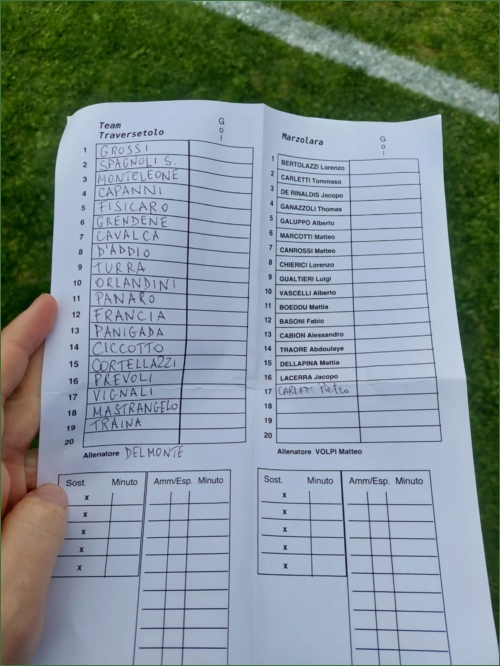 Team
Traversetolo
Gol
1 GROSSI
2 SPAGNOLI S.
3 MONTELEONE
4 CAPANNI
5 FISICARO
6 GRENDENE
7 CAVALCA
8 D'ADDIO
9 TURRA
10 ORLANDINI
11 PANARO
12 FRANCIA
13 PANIGADA
14 CICCOTTO
15 CORTELLAZZI
16 PREVOLI
17 VIGNALI
18 MASTRANGELO
19 TRAINA
20
Allenatore DELMONTE
Sost. Minuto
x
x
x
x
x
Amm/Esp. Minuto
Marzolara
Gol
1 BERTOLAZZI Lorenzo
2 CARLETTI Tommaso
3 DE RINALDIS Jacopo
4 GANAZZOLI Thomas
5 GALUPPO Alberto
6 MARCOTTI Matteo
7 CANROSSI Matteo
8 CHIERICI Lorenzo
9 GUALTIERI Luigi
10 VASCELLI Alberto
11 BOEDDU Mattia
12 BASONI Fabio
13 CABION Alessandro
14 TRAORE Abdoulaye
15 DELLAPINA Mattia
16 LACERRA Jacopo
17 Pietro
18
19
20
Allenatore VOLPI Matteo
Sost. Minuto
x
x
x
x
x
Amm/Esp. Minuto